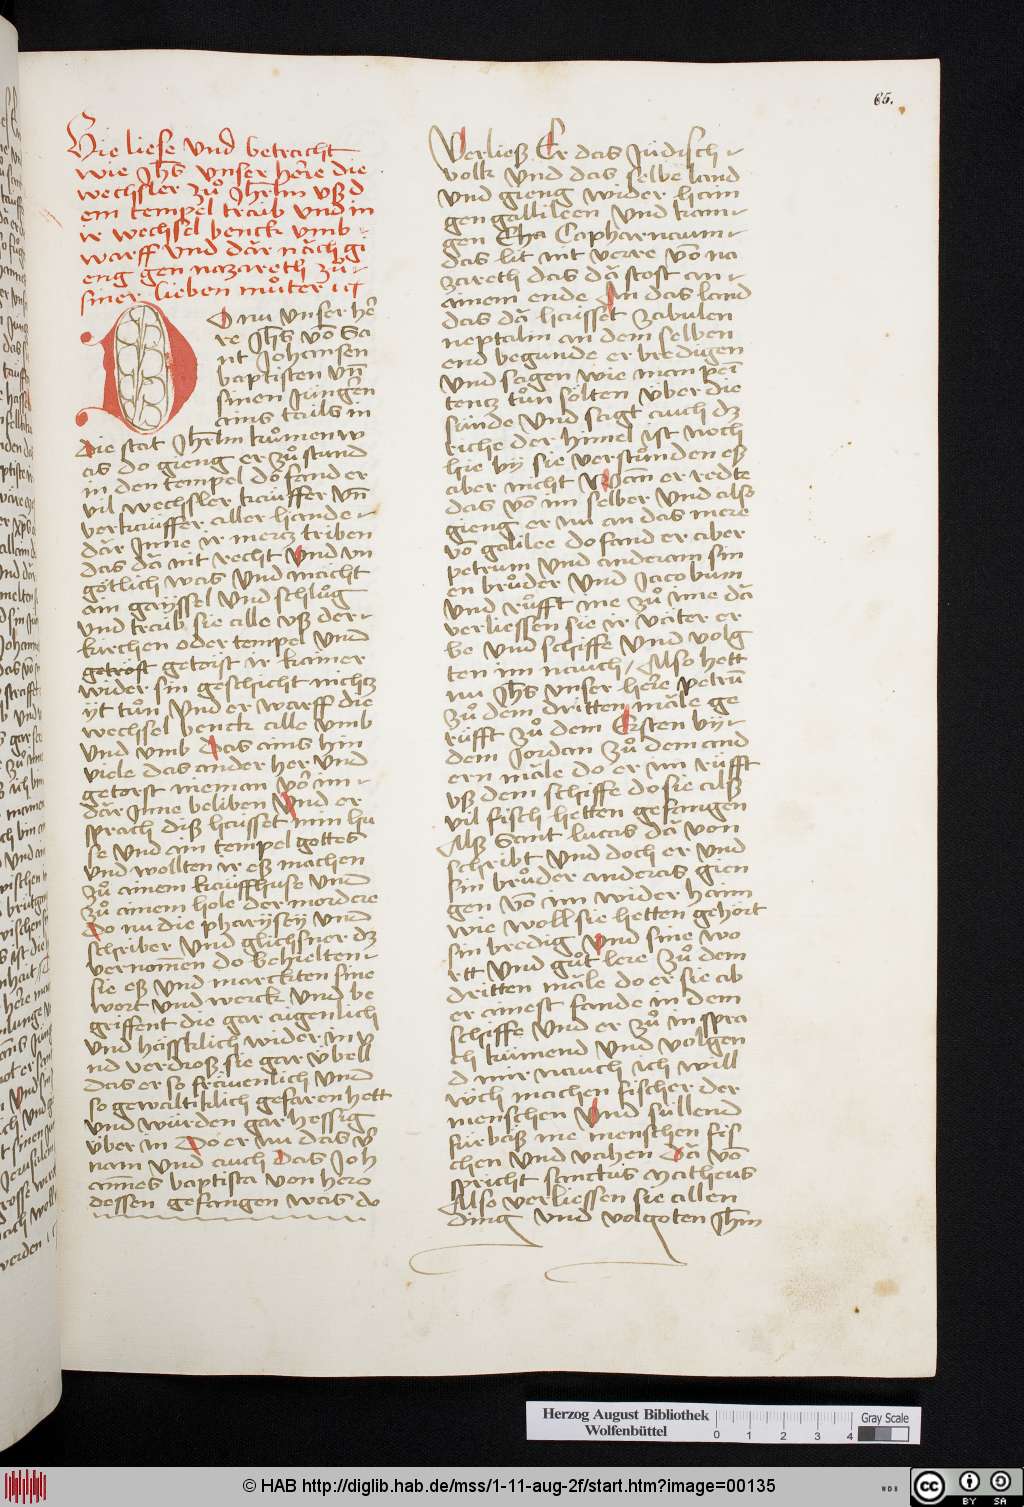 65.
Hie liese und betracht
wie Jhs unser herre die
wechsler zů Jhrlm usz d
em tempel traib und in
ir wechsel benck umb
warff und dar nāch gi
eng gen nazareth zů
siner lieben můter ic
Do nu unser her
re Jhs vō Sa
nt Johansen
baptisten vn̄
sinen Jüngern
ains tails in
die stat Jhrlm kumen w
as do gieng er zů stund
in den tempel do fand er
vil wechsler kauffer vn̄
verkauffer aller hande
dar Inne ir mercz triben
das dā nit recht und un
götlich was und macht
ain gayssel und schlůg
und traib sie alle usz der
kirchen oder tempel und
getröst getorst ir kainer
wider sin geschicht nichcz
yt tůn und er warff die
wechsel benck alle umb
und umb das ains hin
viele das ander her und
getorst nieman vor im
dar Inne beliben und er
sprach disz haisset min hu
se und ain tempel gottes
und wollten ir esz machen
zů ainem kauffhuse und
zů ainem hole der mordere
Do nu die pharysey und
schriber und glichsner dz
vernomen do behielten
sie esz und marckten sine
wort und werck und be
griffent die gar augenlich
und hässklich wider in v
nd verdrosz sie gar übell
das er so fräuenlich und
so gewaltiklich gefaren hett
und würden gar hessig
über in Do er nu das v̄
nam und auch das Joh
annes baptista von hero
dessen gefangen was do
Verliesz Er das Jüdisch
volk und das selbe land
und gieng wider haim
gen gallileen und kam
gen Eha Capharnaum
das lit nit verre vō na
zareth das dā stost an
ainem ende An das land
das dā haisset zabulen
neptalin an dem selben
end begunde er bredigen
und sagen wie man peī
tencz tůn sölten über die
sünde und sagt auch dz
riche der himel ist noch
hie by sie verstůnden esz
aber nicht Wann er redte
das vō im selber und alsz
gieng er nu an das mere
vō galilee do fand er aber
petrum und anderam sin
en brůder und Jacobum
und růfft ine zů ime dā
verliessen sie ir väter er
be und schiffe und volg
ten im nauch / Also hett
nu Jhs unser herre petrū
zů dem dritten māle ge
rüfft zů dem Ersten by
dem Jordan zů dem and
ern māle do er im rüfft
usz dem schiffe do sie alsz
vil fisch hetten gefangen
Alsz Sant lucas dā von
schribt und doch er und
sin brůder anderas gien
gen vō im wider haim
wie woll sie hetten gehört
sin bredig und sine wo
rtt und gůt lere zů dem
dritten māle do er sie ab
er ainest fande in dem
schiffe und er zů in spra
ch kumend und volgen
d mir nauch ich will
üch machen fischer der
menschen und süllend
fürbasz me menschen fis
chen und vahen Dā vō
spricht sanctus Matheus
Also verliessen sie allen
ding und volgoten Jhm
Herzog August Bibliothek
Wolfenbüttel
0 1 2 3 4
Gray Scale
© HAB http://diglib.hab.de/mss/1-11-aug-2f/start.htm?image=00135
WDB
cc BY SA